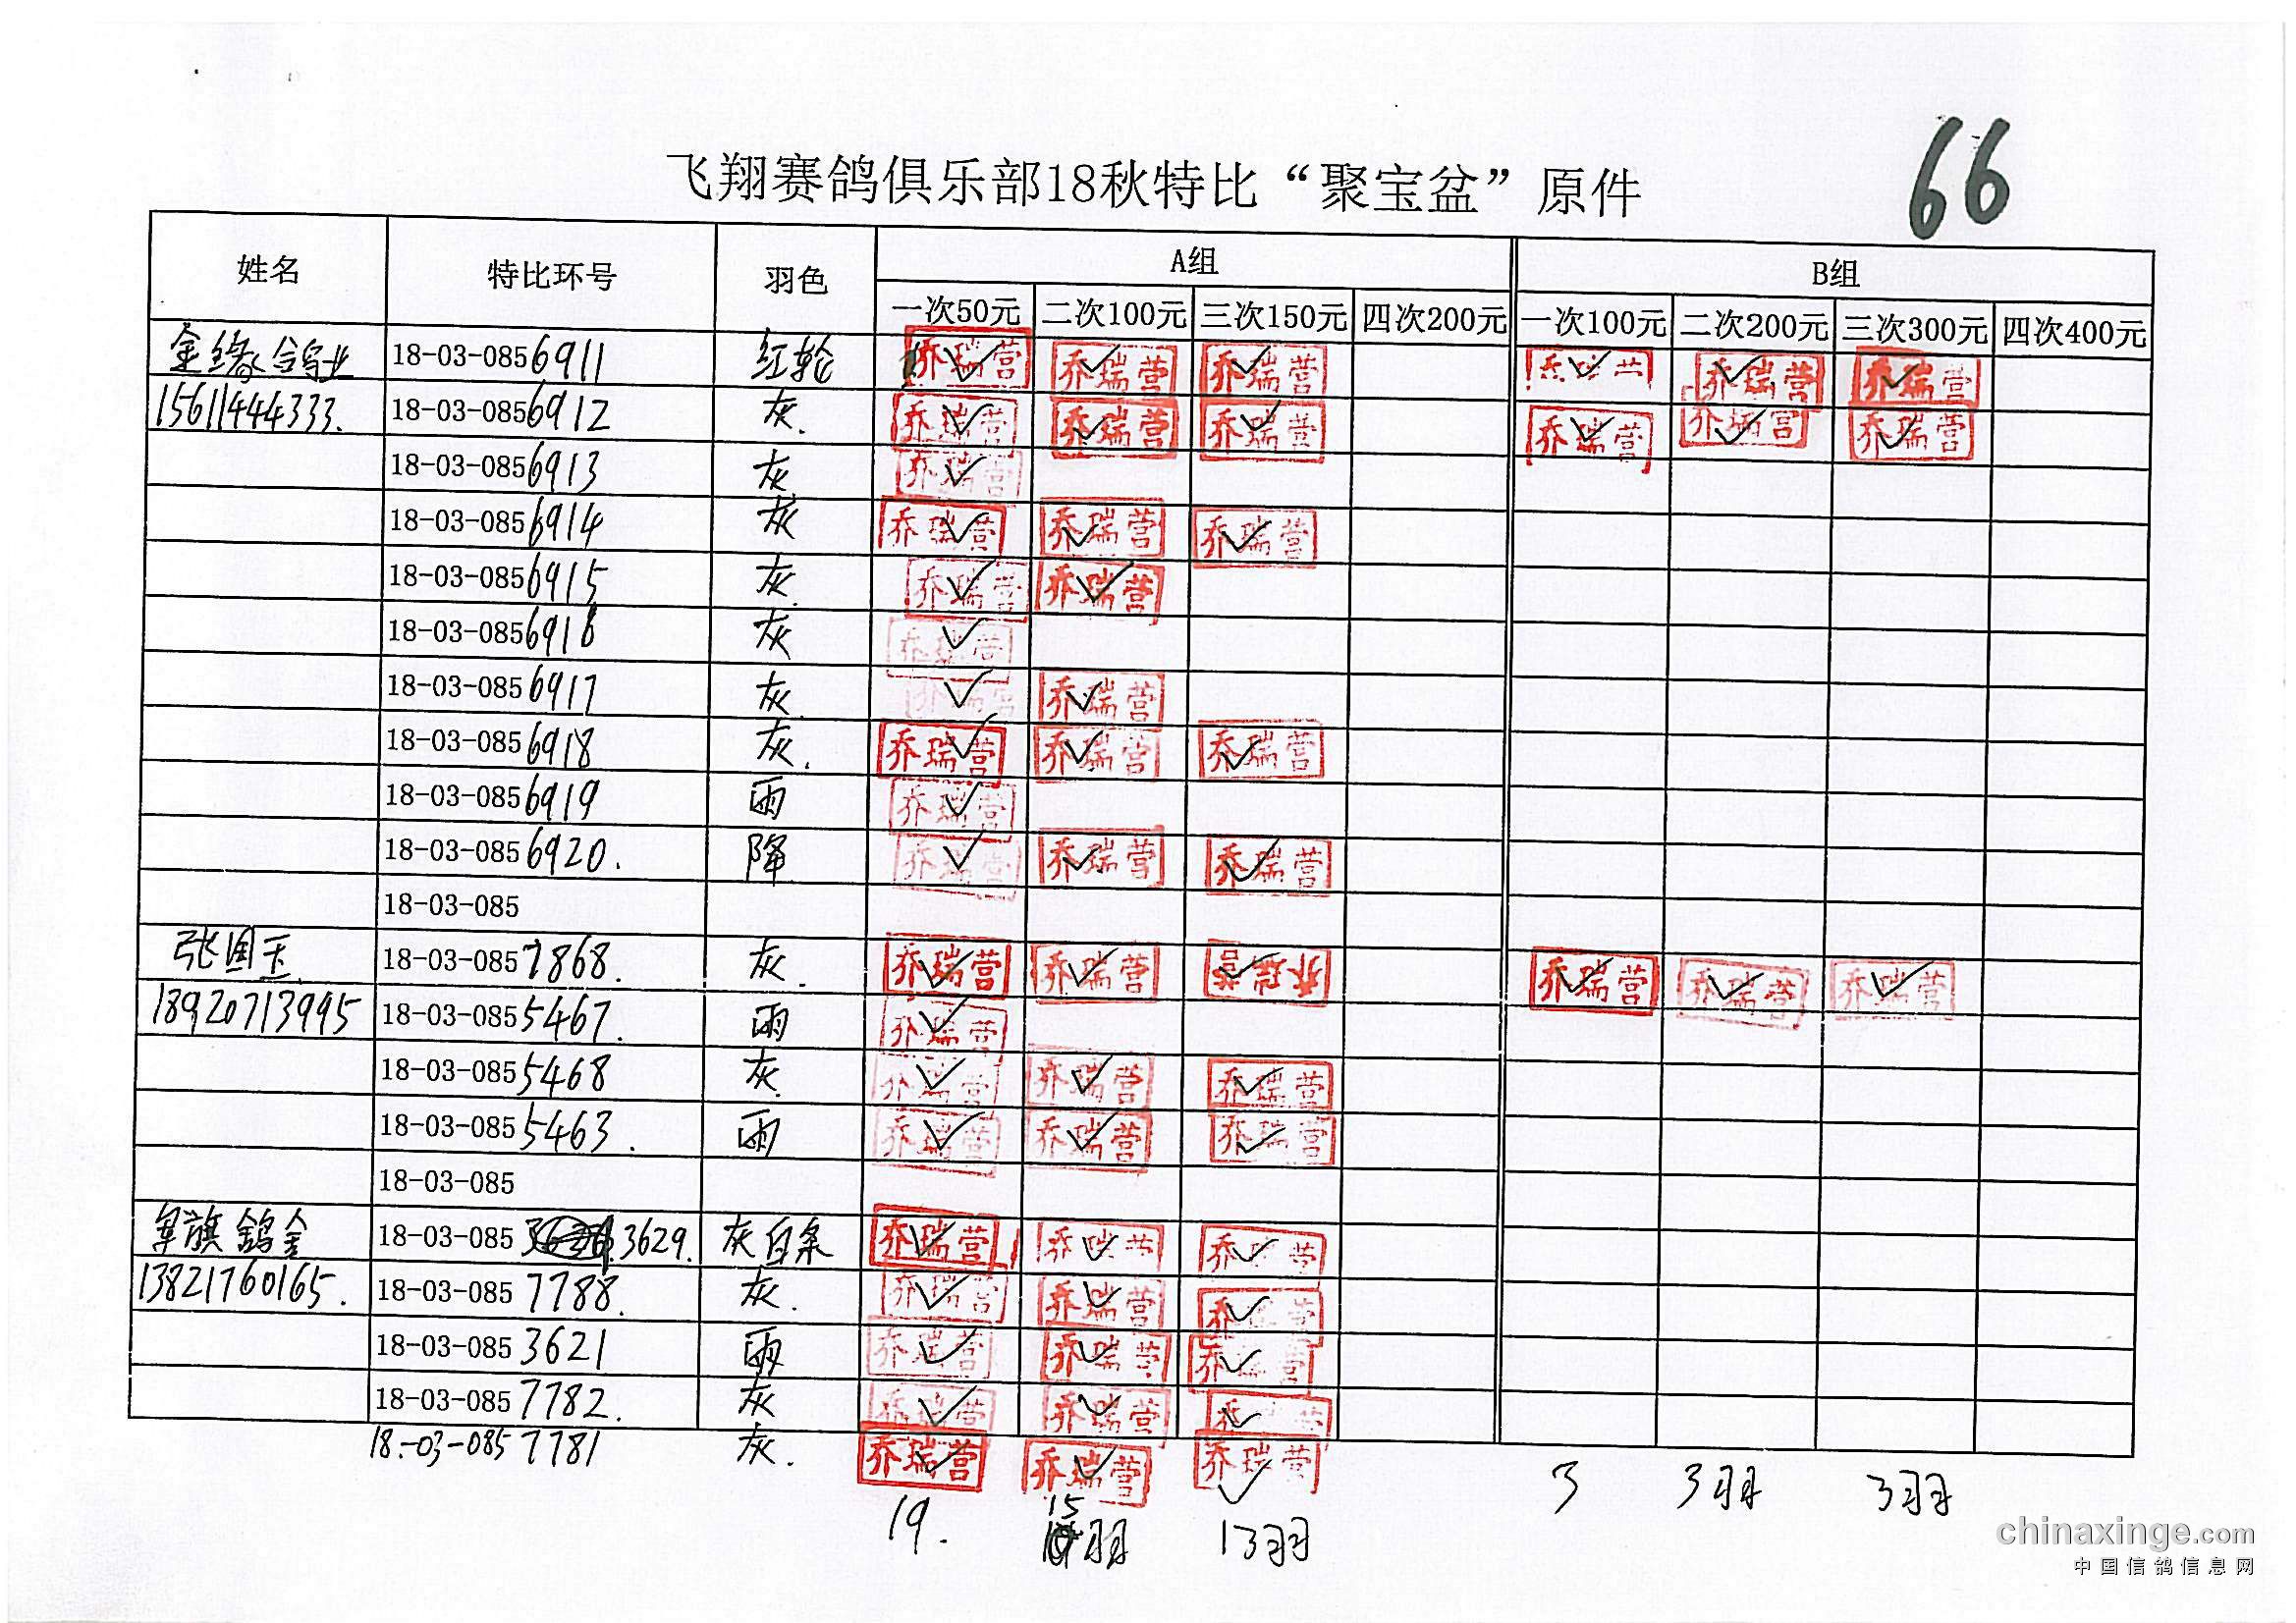 66
飞翔赛鸽俱乐部18秋特比“聚宝盆”原件
姓名 特比环号 羽色 A组 B组
一次50元 二次100元 三次150元 四次200元 一次100元 二次200元 三次300元 四次400元
金缘鸽业 18-03-0856911 红轮 乔瑞营 ✓ 乔瑞营 ✓ 乔瑞营 ✓ 乔瑞营 ✓ 乔瑞营 ✓ 乔瑞营 ✓
15611444333. 18-03-0856912 灰. 乔瑞营 ✓ 乔瑞营 ✓ 乔瑞营 ✓ 乔瑞营 ✓ 乔瑞营 ✓ 乔瑞营 ✓
18-03-0856913 灰 乔瑞营 ✓
18-03-0856914 灰 乔瑞营 ✓ 乔瑞营 ✓ 乔瑞营 ✓
18-03-0856915 灰. 乔瑞营 ✓ 乔瑞营 ✓
18-03-0856918 灰 乔瑞营 ✓
18-03-0856917 灰. 乔瑞营 ✓ 乔瑞营 ✓
18-03-0856918 灰. 乔瑞营 ✓ 乔瑞营 ✓ 乔瑞营 ✓
18-03-0856919 雨 乔瑞营 ✓
18-03-0856920. 降 乔瑞营 ✓ 乔瑞营 ✓ 乔瑞营 ✓
18-03-085
张国玉 18-03-0857868. 灰. 乔瑞营 ✓ 乔瑞营 ✓ 乔瑞营 ✓ 乔瑞营 ✓ 乔瑞营 ✓ 乔瑞营 ✓
18920713995 18-03-0855467. 雨 乔瑞营 ✓
18-03-0855468 灰. 乔瑞营 ✓ 乔瑞营 ✓ 乔瑞营 ✓
18-03-0855463. 雨 乔瑞营 ✓ 乔瑞营 ✓ 乔瑞营 ✓
18-03-085
军旗鸽舍 18-03-085 3629. 灰白条 乔瑞营 ✓ 乔瑞营 ✓ 乔瑞营 ✓
13821760165. 18-03-0857788. 灰. 乔瑞营 ✓ 乔瑞营 ✓ 乔瑞营 ✓
18-03-0853621 雨 乔瑞营 ✓ 乔瑞营 ✓ 乔瑞营 ✓
18-03-0857782. 灰 乔瑞营 ✓ 乔瑞营 ✓ 乔瑞营 ✓
18-03-0857781 灰. 乔瑞营 ✓ 乔瑞营 ✓ 乔瑞营 ✓
19. 15羽 13羽 3 3羽 3羽
chinaxinge.com
中国信鸽信息网